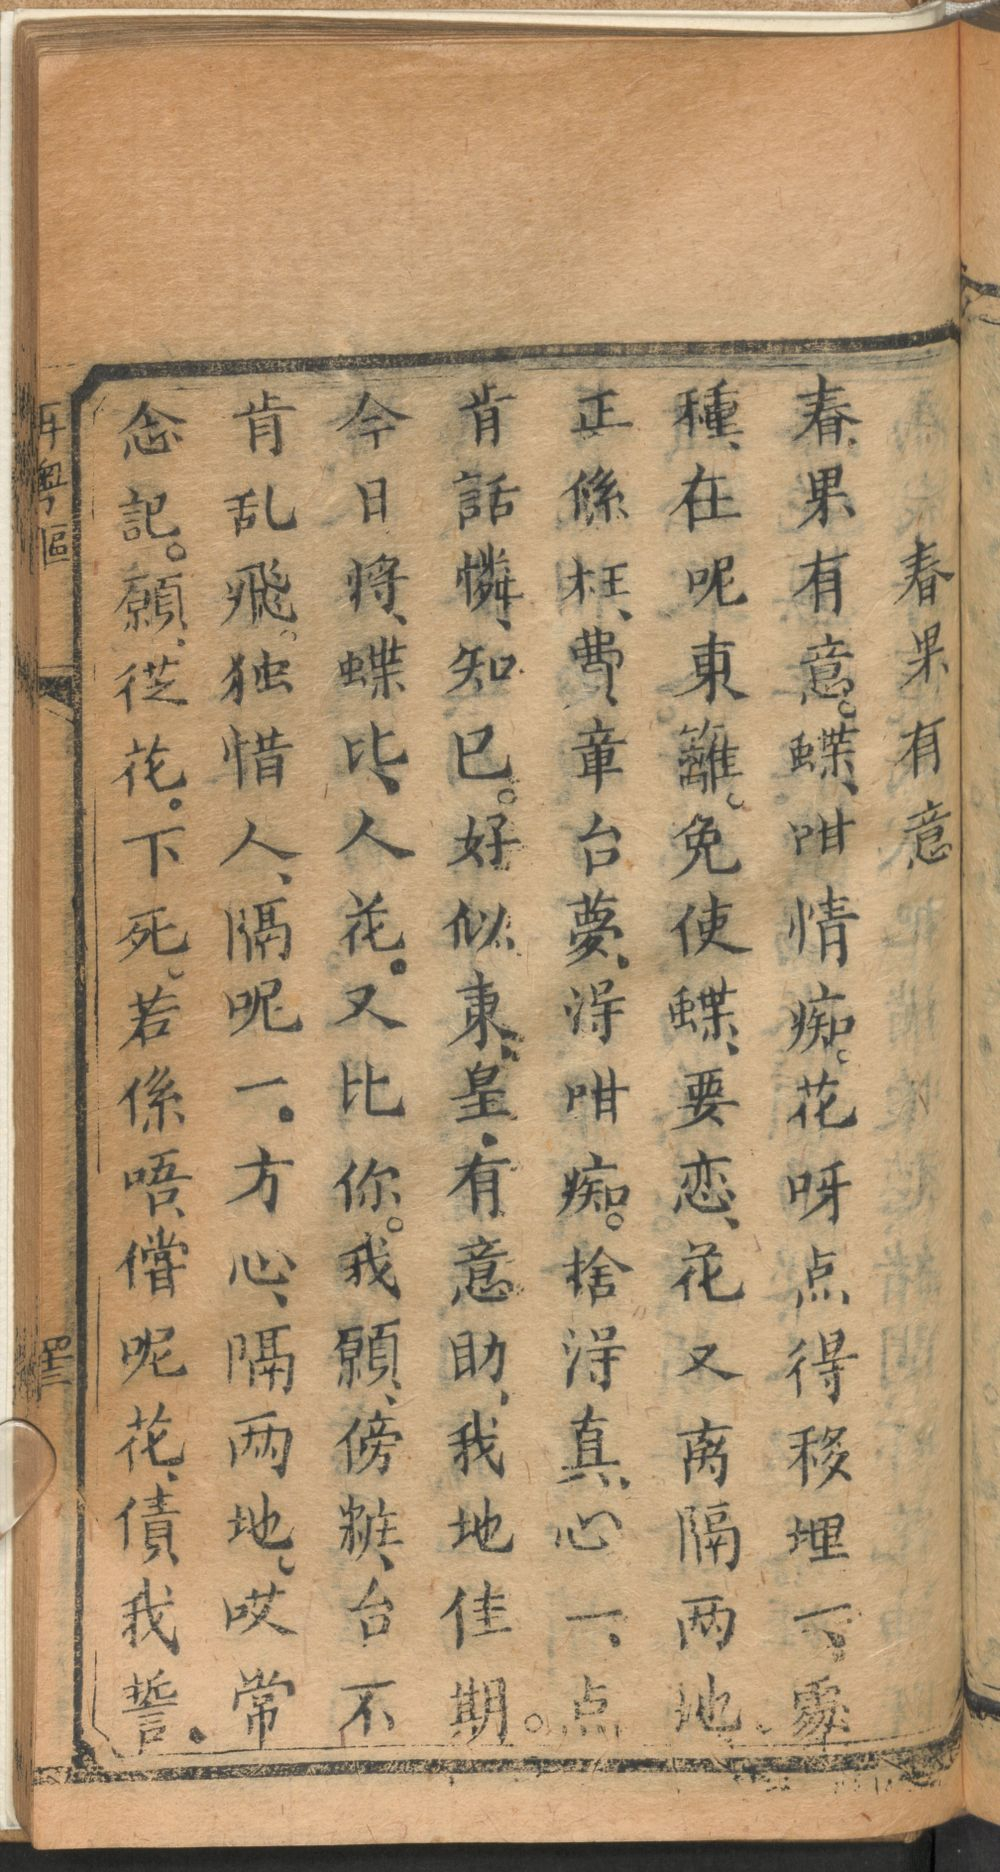 春果有意
春果有意。蝶、咁情痴。花呀点得移埋一、處
種、在呢東籬。免使蝶、要恋、花又离隔两地、
正係枉、費章台夢、淂咁痴。捨淂真、心一、点
肯話憐、知已。好似、東、皇、有意助、我地佳期。
今日将、蝶比、人花。又比你。我願、傍粧、台不
肯乱飛。独惜人、隔呢一。方心、隔两地。哎常
念記。願、從花。下死。若係唔、償呢花、債、我誓、
再粤謳
四十三